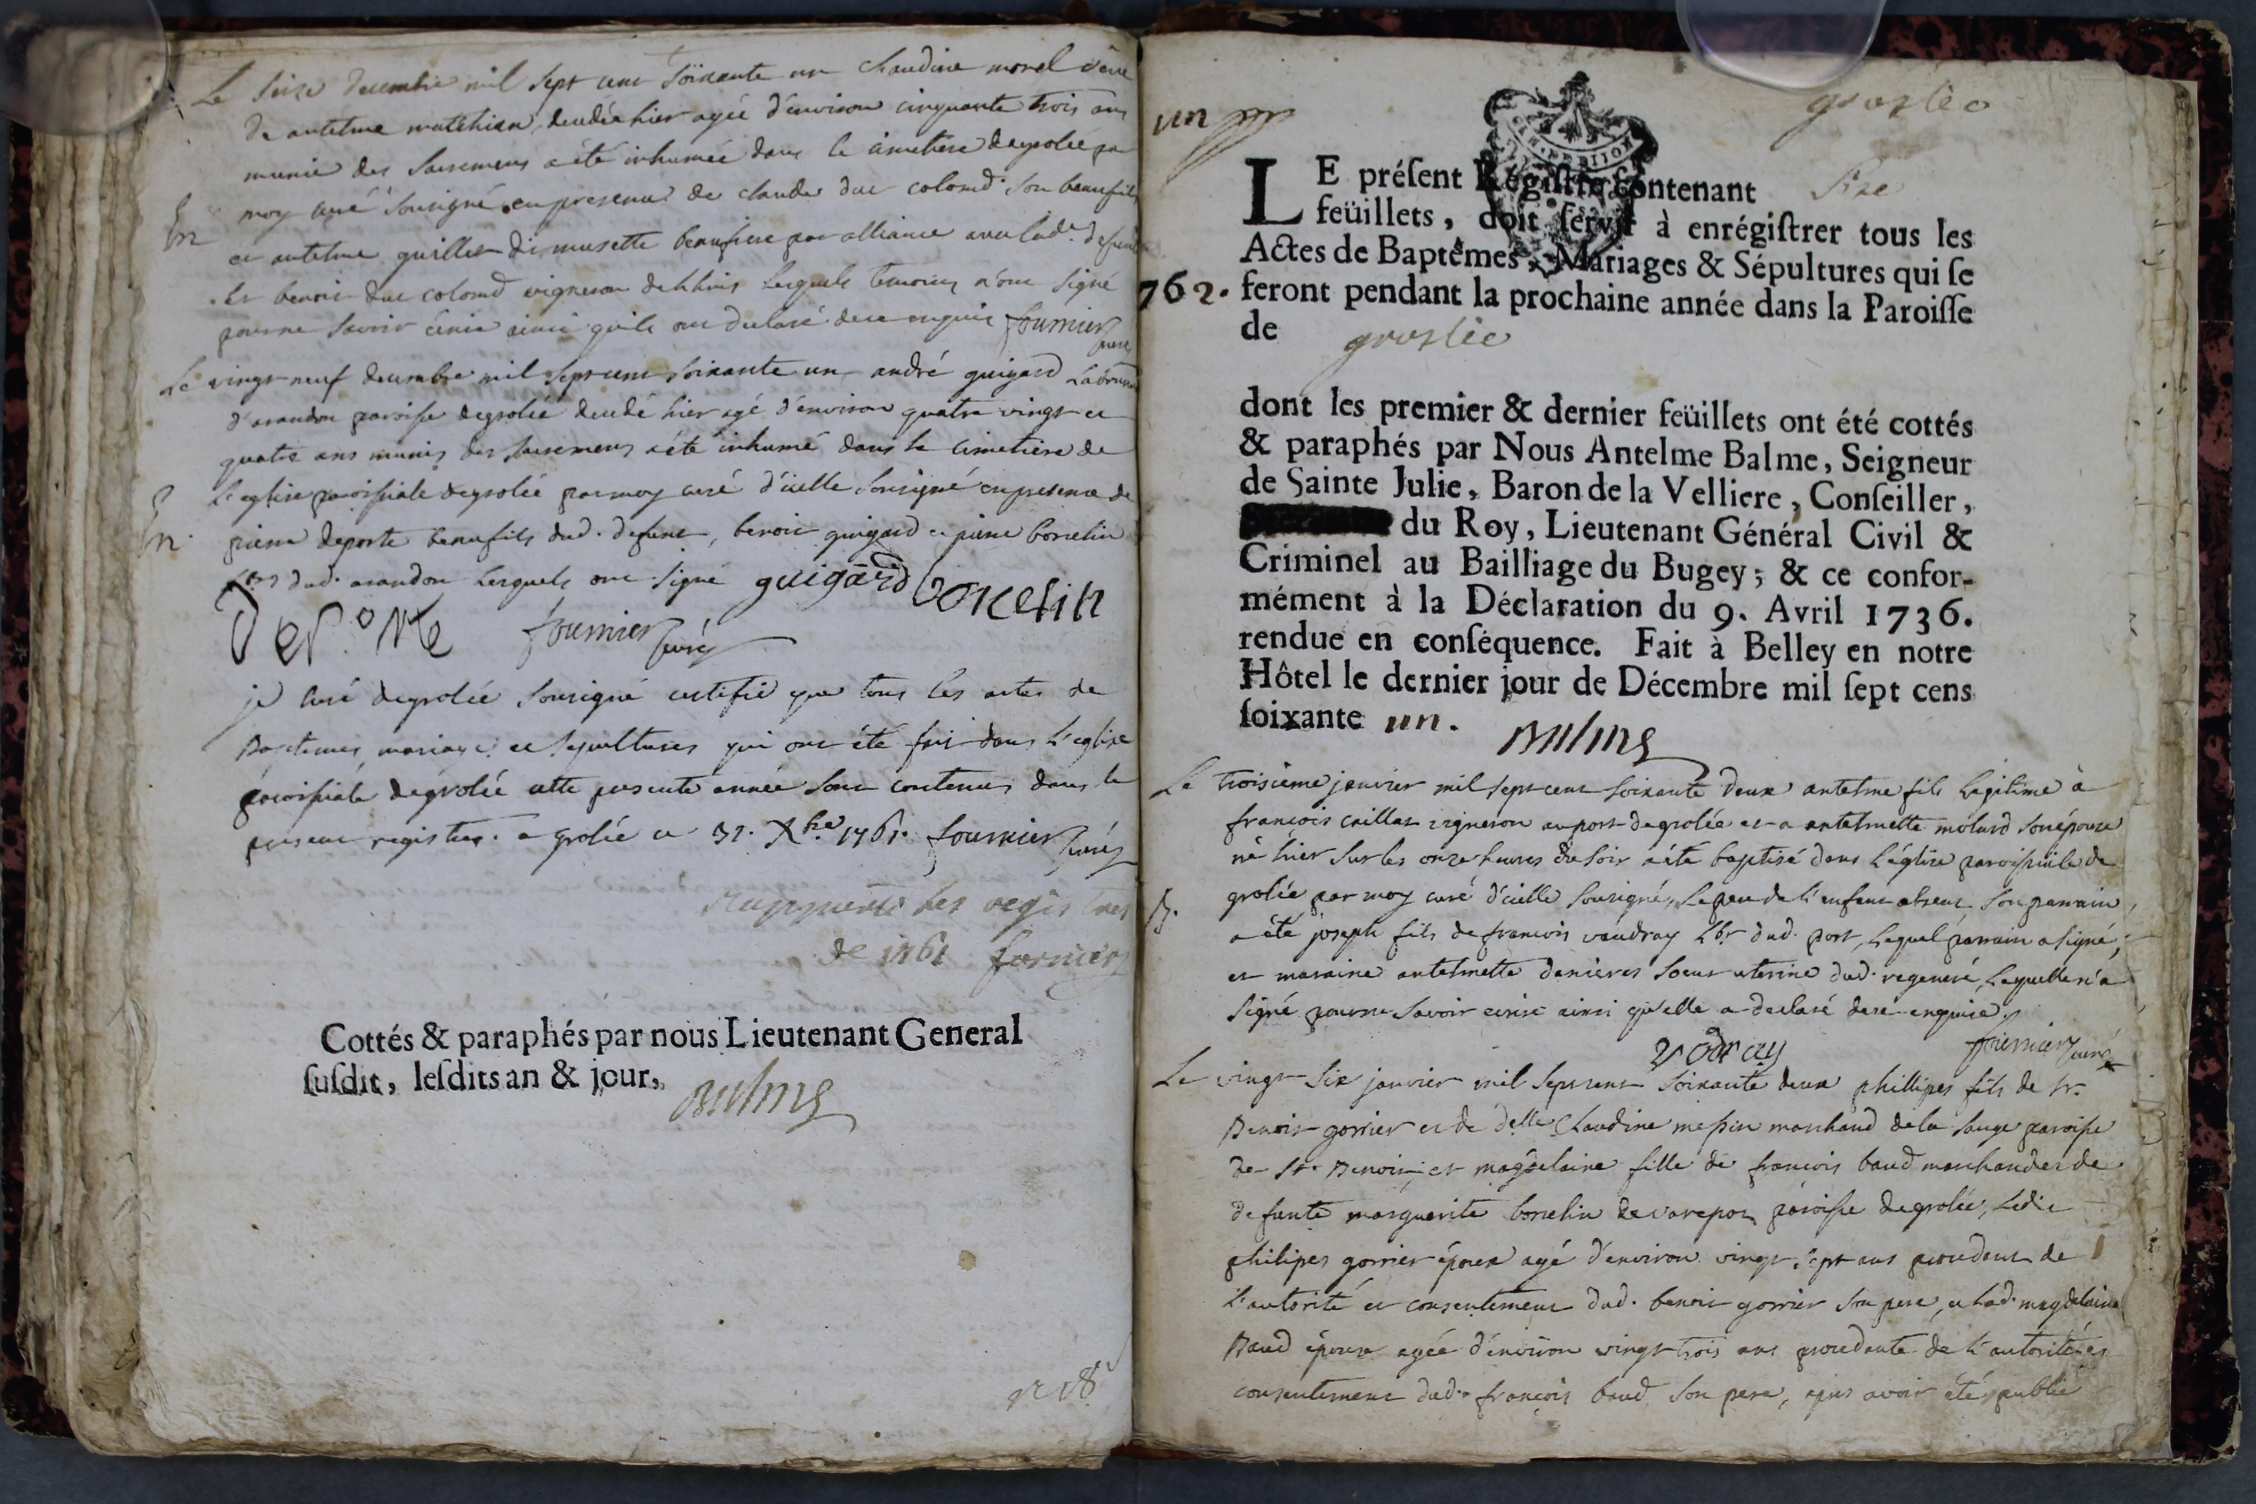 Le seize decembre mil sept cent soixante un claudine morel veuve
de antelme matthian, decedée hier agée d'environ cinquante trois ans
munie des sacremens a été inhumée dans le cimetiere de grolée par
moy curé soussigné en presence de claude duc colomd son beaufils
et antelme guillet di musette beaufrere par alliance avec lad.e defunte
et benoit duc colomd vigneron de lhuis lesquels temoins n'ont signé
pour ne savoir écrire ainsi qu'ils ont declaré de ce enquis fournier
curé
Le vingt neuf decembre mil sept cent soixante un andré guigard
d'arandon paroisse de grolée decedé hier agé d'environ quatre vingt et
quatre ans munis des sacremens a été inhumé dans le cimetiere de
L'eglise paroissiale de grolée par moy curé d'icelle soussigné en presence de
pierre deporte beaufils dud. defunt, benoit guigard et pierre borcelin
dud. arandon lesquels ont signé guigard borcelin
deporte fournier curé
je curé de grolée soussigné certifie que tous les actes de
Baptemes, mariages et sepultures qui ont été fait dans l'eglise
paroissiale de grolée cette presente année sont contenus dans le
present registre. a grolée ce 31. Xbre 1761. fournier curé
les registres
de 1761 fornier
Cottés & paraphés par nous Lieutenant General
ſuſdit, leſdits an & jour,
Balme
un
groslée
LE préſent Régiſtre contenant Sixe
feüillets, doit ſervir à enrégiſtrer tous les
Actes de Baptêmes, Mariages & Sépultures qui ſe
762. feront pendant la prochaine année dans la Paroiſſe
de groslée
dont les premier & dernier feüillets ont été cottés
& paraphés par Nous Antelme Balme, Seigneur
de Sainte Julie, Baron de la Velliere, Conſeiller,
du Roy, Lieutenant Général Civil &
Criminel au Bailliage du Bugey; & ce confor-
mément à la Déclaration du 9. Avril 1736.
rendue en conſéquence. Fait à Belley en notre
Hôtel le dernier jour de Décembre mil ſept cens
ſoixante un.
Balme
Le troisième janvier mil sept cent soixante deux antelme fils legitime à
françois caillat vigneron au port de grolée et a antelmette molard son épouse
né hier sur les onze heures du soir a été baptisé dans l'église paroissiale de
grolée par moy curé d'icelle soussigné, le pere de l'enfant absent, son parrain
B.
a été joseph fils de francois vaudray Lbr dud. port, lequel parrain a signé,
et maraine antelmette danieres soeur uterine dud. regeneré, laquelle n'a
signé pour ne savoir ecrire ainsi qu'elle a declaré de ce enquise
vodray fournier curé
Le vingt six janvier mil sept cent soixante deux phillipes fils de sr.
Benoit gorrier et de delle Claudine messin marchand de la sauge paroisse
de St. Benoit, et magdelaine fille de françois baud marchand et de
defunte marguerite borcelin de varepoz paroisse de grolée, ledit
philipes gorrier époux agé d'environ vingt sept ans procedant de
L'autorité et consentement dud. benoit gorrier son pere, et lad. magdelaine
Baud épouse agée d'environ vingt trois ans procedante de l'autorité et
consentement dud. françois baud son pere, apres avoir été publié